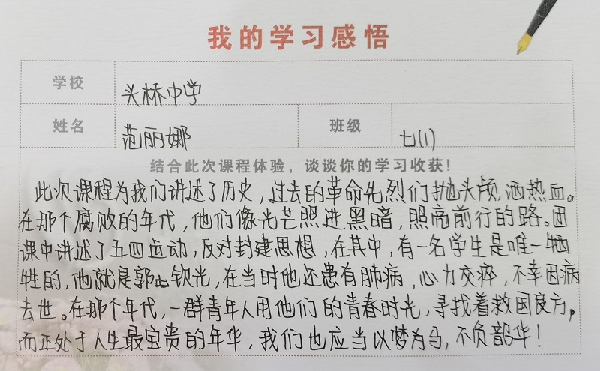 我的学习感悟
学校 头桥中学
姓名 范丽娜 班级 七(1)
结合此次课程体验，谈谈你的学习收获！
此次课程为我们讲述了历史，过去的革命先烈们抛头颅洒热血。
在那个腐败的年代，他们像光芒照进黑暗，照亮前行的路。团
课中讲述了五四运动，反对封建思想，在其中，有一名学生是唯一牺
牲的，他就是郭钦光，在当时他还患有肺病，心力交瘁，不幸因病
去世。在那个年代，一群青年人用他们的青春时光，寻找着救国良方，
而正处于人生最宝贵的年华，我们也应当以梦为马，不负韶华！